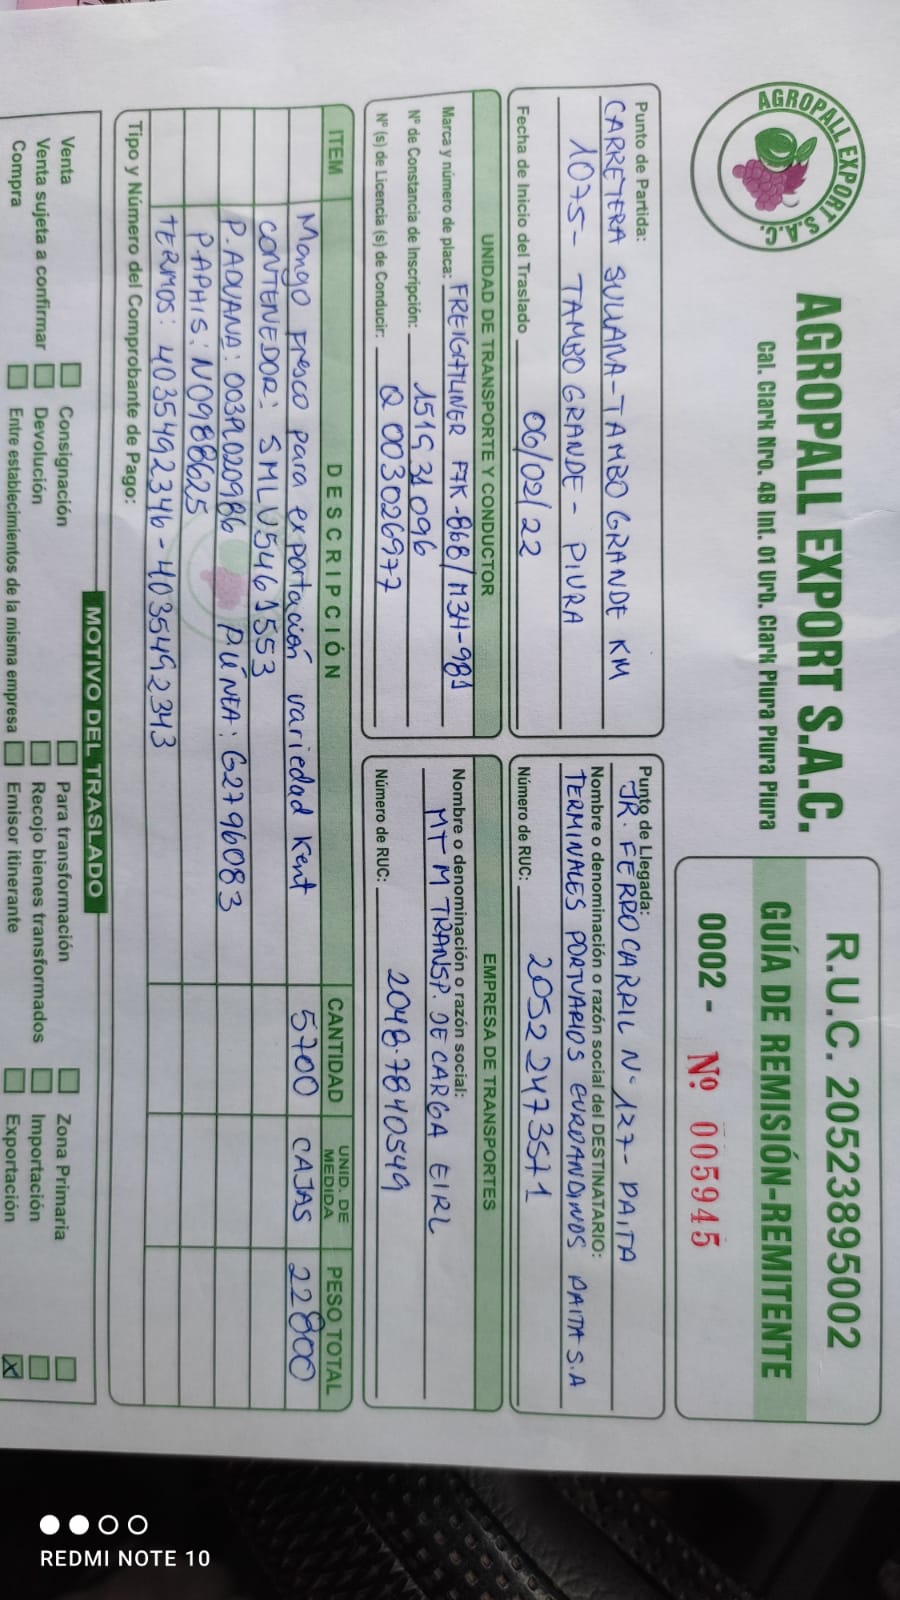 AGROPALL EXPORT S.A.C.
AGROPALL EXPORT S.A.C.
Cal. Clark Nro. 4B Int. 01 Urb. Clark Piura Piura Piura
R.U.C. 20523895002
GUÍA DE REMISIÓN-REMITENTE
0002 - Nº 005945
Punto de Partida:
CARRETERA SULLANA-TAMBO GRANDE KM
1075- TAMBO GRANDE - PIURA
Fecha de Inicio del Traslado 06/02/22
Punto de Llegada:
JR. FERROCARRIL Nº 127- PAITA
Nombre o denominación o razón social del DESTINATARIO:
TERMINALES PORTUARIOS EUROANDINOS PAITA S.A
Número de RUC: 20522473571
UNIDAD DE TRANSPORTE Y CONDUCTOR
Marca y número de placa: FREIGHTLINER F7K-868/M3H-981
Nº de Constancia de Inscripción: 151931096
Nº (s) de Licencia (s) de Conducir: Q 003026977
EMPRESA DE TRANSPORTES
Nombre o denominación o razón social:
MTM TRANSP. DE CARGA EIRL
Número de RUC: 20487840549
ITEM DESCRIPCIÓN CANTIDAD UNID. DE MEDIDA PESO TOTAL
Mango Fresco para exportación variedad Kent 5700 CAJAS 22800
CONTENEDOR: SMLU5461553
P. ADUANA: 003PL020986 P. LÍNEA: G2796083
P. APHIS: N0988625
TERMOS: 4035492346 - 4035492343
Tipo y Número del Comprobante de Pago:
MOTIVO DEL TRASLADO
Venta Consignación Para transformación Zona Primaria
Venta sujeta a confirmar Devolución Recojo bienes transformados Importación
Compra Entre establecimientos de la misma empresa Emisor itinerante Exportación X
REDMI NOTE 10